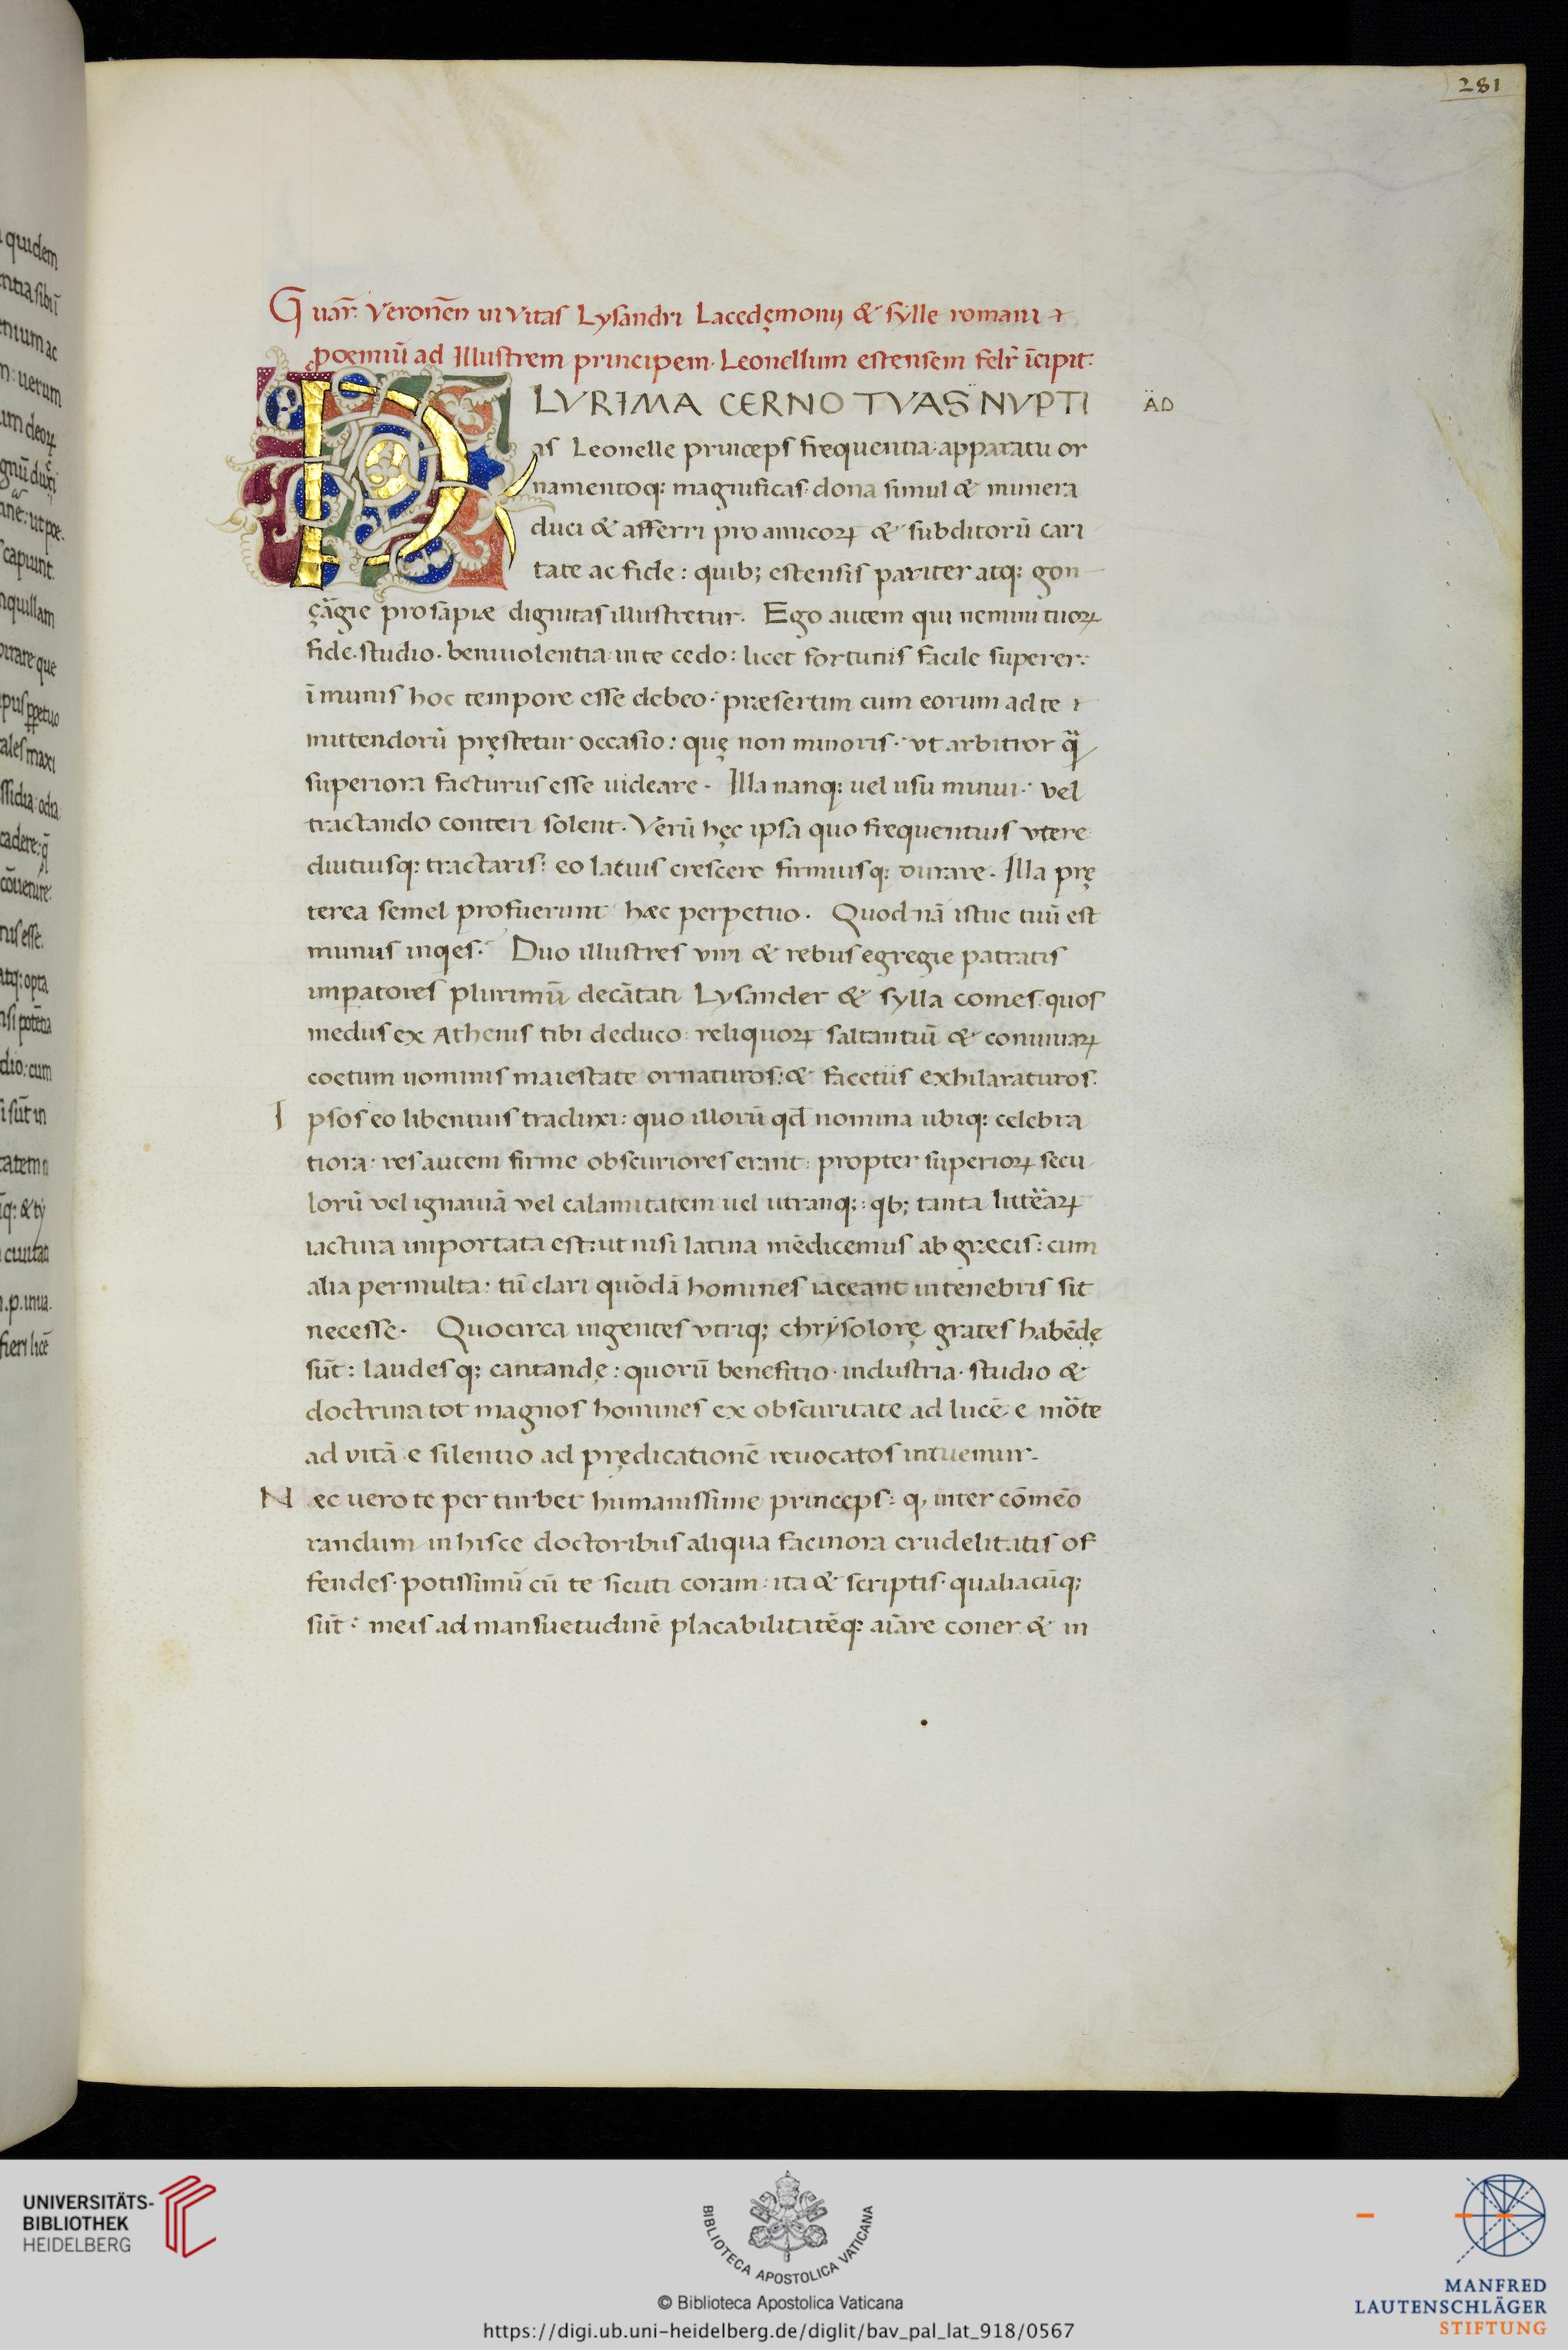 281
Guar̄. Veronēn in vitas Lysandri Lacedęmonij & sylle romani ꝛ
ꝓoemiū ad Illustrem principem. Leonellum estensem felr̄ īcipit:
PLVRIMA CERNO TVAS NVPTI
ÄD
as Leonelle princeps frequentia apparatu or
namentoq; magnificas. dona simul & munera
duci & afferri pro amicoꝝ & subditorū cari
tate ac fide: quib; estensis pariter atq; gon
çāgie prosapiæ dignitas illustretur. Ego autem qui nemini tuoꝝ
fide. studio. beniuolentia in te cedo: licet fortunis facile superer:
īmunis hoc tempore esse debeo: præsertim cum eorum ad te
mittendorū pręstetur occasio: quę non minoris. vt arbitror q̃
superiora facturus esse uideare. Illa nanq; uel usu minui. vel
tractando conteri solent. Verū hęc ipsa quo frequentius vtere
diutiusq; tractaris: eo latius crescere firmiusq; durare. Illa prę
terea semel profuerunt hæc perpetuo. Quod nā istuc tuū est
munus inqes. Duo illustres viri & rebus egregie patratis
impatores plurimū decātati Lysander & sylla comes. quos
medus ex Athenis tibi deduco: reliquoꝝ saltantiū & conuiuaꝝ
coetum nominis maiestate ornaturos: & facetiis exhilaraturos.
Ipsos eo libentius traduxi: quo illorū qd̄ nomina ubiq; celebra
tiora: res autem firme obscuriores erant: propter superioꝝ secu
lorū vel ignauiā vel calamitatem uel utranq;: qb; tanta litteraꝝ
iactura importata est: ut nisi latina mēdicemus ab græcis: cum
alia permulta: tū clari quōdā homines iaceant in tenebris sit
necesse. Quocirca ingentes vtriq; chrysolorę grates habēdę
sūt: laudesq; cantandę: quorū benefitio. industria. studio &
doctrina tot magnos homines ex obscuritate ad lucē e mo̎te
ad vitā e silentio ad prędicationē reuocatos intuemur.
Næc uero te perturbet humanissime princeps: ꝙ inter cōmeō
randum in hisce doctoribus aliqua facinora crudelitatis of
fendes. potissimū cū te sicuti coram: ita & scriptis. qualiacūq;
sūt: meis ad mansuetudinē placabilitatēq; aīare coner & in
UNIVERSITÄTS-
BIBLIOTHEK
HEIDELBERG
BIBLIOTECA APOSTOLICA VATICANA
© Biblioteca Apostolica Vaticana
https://digi.ub.uni-heidelberg.de/diglit/bav_pal_lat_918/0567
MANFRED
LAUTENSCHLÄGER
STIFTUNG